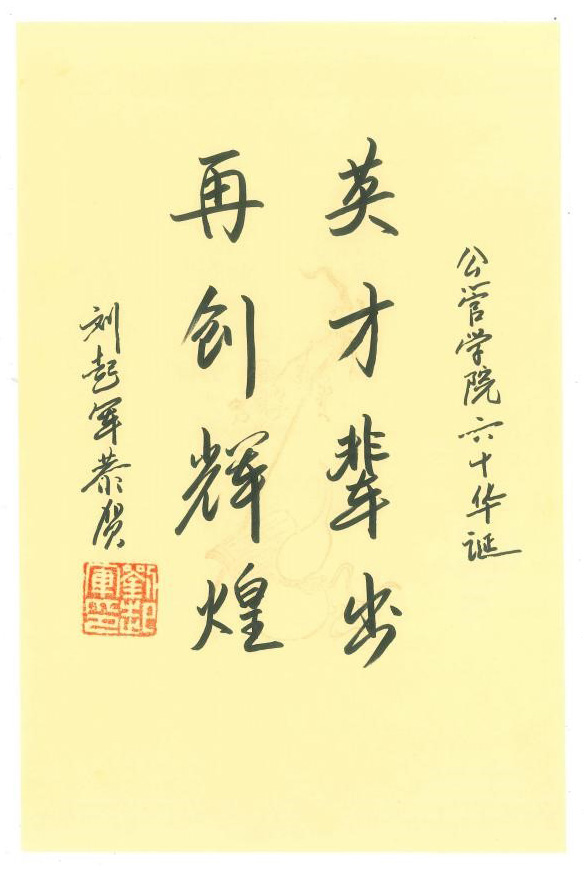 公管学院六十华诞
英才辈出
再创辉煌
刘起军恭贺
劉起軍印